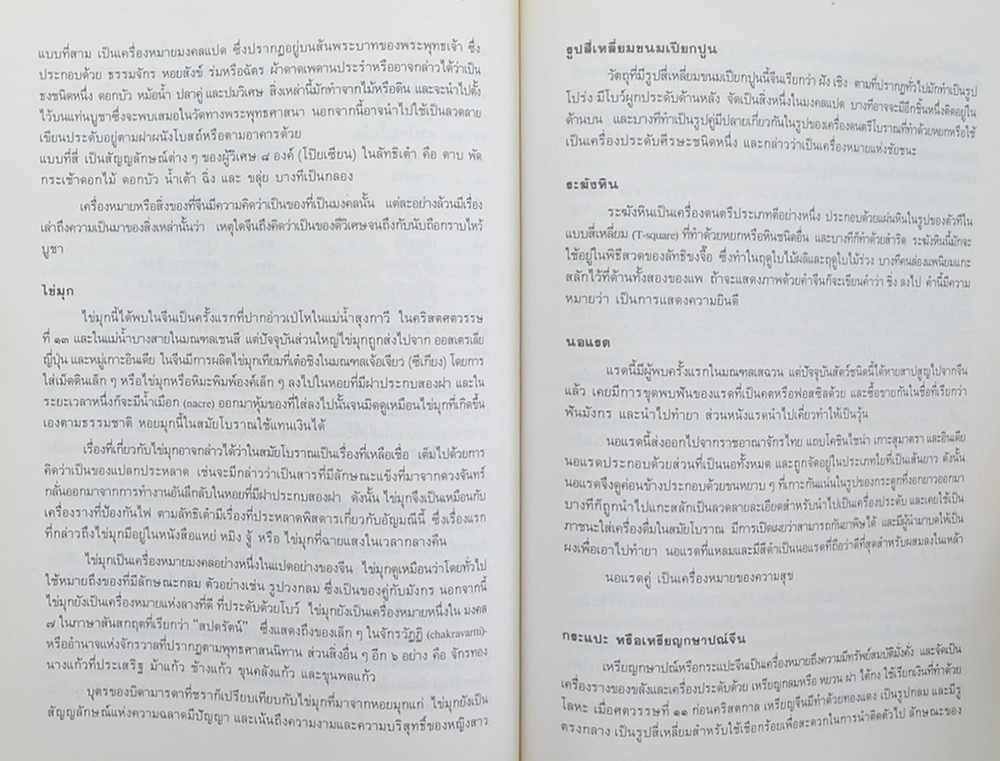 แบบที่สาม เป็นเครื่องหมายมงคลแปด ซึ่งปรากฏอยู่บนส้นพระบาทของพระพุทธเจ้า ซึ่ง
ประกอบด้วย ธรรมจักร หอยสังข์ ร่มหรือฉัตร ผ้าดาดเพดานประรำหรืออาจกล่าวได้ว่าเป็น
ธงชนิดหนึ่ง ดอกบัว หม้อน้ำ ปลาคู่ และปมวิเศษ สิ่งเหล่านี้มักทำจากไม้หรือดิน และจะนำไปตั้ง
ไว้บนแท่นบูชาซึ่งจะพบเสมอในวัดทางพระพุทธศาสนา นอกจากนี้อาจนำไปใช้เป็นลวดลาย
เขียนประดับอยู่ตามฝาผนังโบสถ์หรือตามอาคารด้วย
แบบที่สี่ เป็นสัญญลักษณ์ต่าง ๆ ของผู้วิเศษ ๘ องค์ (โป๊ยเซียน) ในลัทธิเต๋า คือ ดาบ พัด
กระเช้าดอกไม้ ดอกบัว น้ำเต้า ฉิ่ง และ ขลุ่ย บางทีเป็นกลอง
เครื่องหมายหรือสิ่งของที่จีนมีความคิดว่าเป็นของที่เป็นมงคลนั้น แต่ละอย่างล้วนมีเรื่อง
เล่าถึงความเป็นมาของสิ่งเหล่านั้นว่า เหตุใดจีนถึงคิดว่าเป็นของดีวิเศษจนถึงกับนับถือกราบไหว้
บูชา
ไข่มุก
ไข่มุกนี้ได้พบในจีนเป็นครั้งแรกที่ปากอ่าวเป๋โหในแม่น้ำสุงกาวี ในคริสตศตวรรษ
ที่ ๑๓ และในแม่น้ำบางสายในมณฑลเชนสี แต่ปัจจุบันส่วนใหญ่ไข่มุกถูกส่งไปจาก ออสเตรเลีย
ญี่ปุ่น และหมู่เกาะอินเดีย ในจีนมีการผลิตไข่มุกเทียมที่เต๋อชิงในมณฑลเจ้อเจียว (ซีเกียง) โดยการ
ใส่เม็ดดินเล็ก ๆ หรือไข่มุกหรือพิมะพิมพ์องค์เล็ก ๆ ลงไปในหอยที่มีฝาประกบสองฝา และใน
ระยะเวลาหนึ่งก็จะมีน้ำเมือก (nacre) ออกมาหุ้มของที่ใส่ลงไปนั้นจนมิดดูเหมือนไข่มุกที่เกิดขึ้น
เองตามธรรมชาติ หอยมุกนี้ในสมัยโบราณใช้แทนเงินได้
เรื่องที่เกี่ยวกับไข่มุกอาจกล่าวได้ว่าในสมัยโบราณเป็นเรื่องที่เหลือเชื่อ เต็มไปด้วยการ
คิดว่าเป็นของแปลกประหลาด เช่นจะมีกล่าวว่าเป็นสารที่มีลักษณะแข็งที่มาจากดวงจันทร์
กลั่นออกมาจากการทำงานอันลึกลับในหอยที่มีฝาประกบสองฝา ดังนั้น ไข่มุกจึงเป็นเหมือนกับ
เครื่องรางที่ป้องกันไฟ ตามลัทธิเต๋ามีเรื่องที่ประหลาดพิสดารเกี่ยวกับอัญมณีนี้ ซึ่งเรื่องแรก
ที่กล่าวถึงไข่มุกมีอยู่ในหนังสือแหย่ หมิง จู้ หรือ ไข่มุกที่ฉายแสงในเวลากลางคืน
ไข่มุกเป็นเครื่องหมายมงคลอย่างหนึ่งในแปดอย่างของจีน ไข่มุกดูเหมือนว่าโดยทั่วไป
ใช้หมายถึงของที่มีลักษณะกลม ตัวอย่างเช่น รูปวงกลม ซึ่งเป็นของคู่กับมังกร นอกจากนี้
ไข่มุกยังเป็นเครื่องหมายแห่งลางที่ดี ที่ประดับด้วยโบว์ ไข่มุกยังเป็นเครื่องหมายหนึ่งใน มงคล
๗ ในภาษาสันสกฤตที่เรียกว่า "สปตรัตน์" ซึ่งแสดงถึงของเล็ก ๆ ในจักรวัฎฎิ (chakravartti)-
หรืออำนาจแห่งจักรวาลที่ปรากฏตามพุทธศาสนนิทาน ส่วนสิ่งอื่น ๆ อีก ๖ อย่าง คือ จักรทอง
นางแก้วที่ประเสริฐ ม้าแก้ว ช้างแก้ว ขุนคลังแก้ว และขุนพลแก้ว
บุตรของบิดามารดาที่ชราก็เปรียบเทียบกับไข่มุกที่มาจากหอยมุกแก่ ไข่มุกยังเป็น
สัญญลักษณ์แห่งความฉลาดมีปัญญา และเน้นถึงความงามและความบริสุทธิ์ของหญิงสาว
รูปสี่เหลี่ยมขนมเปียกปูน
วัตถุที่มีรูปสี่เหลี่ยมขนมเปียกปูนนี้จีนเรียกว่า ฝัง เชิง ตามที่ปรากฏทั่วไปมักทำเป็นรูป
โปร่ง มีโบว์ผูกประดับด้านหลัง จัดเป็นสิ่งหนึ่งในมงคลแปด บางทีอาจจะมีอีกชิ้นหนึ่งติดอยู่ใน
ด้านบน และบางทีทำเป็นรูปคู่มีปลายเกี่ยวกันในรูปของเครื่องดนตรีโบราณที่ทำด้วยหยกหรือใช้
เป็นเครื่องประดับศีรษะชนิดหนึ่ง และกล่าวว่าเป็นเครื่องหมายแห่งชัยชนะ
ระฆังหิน
ระฆังหินเป็นเครื่องดนตรีประเภทตีอย่างหนึ่ง ประกอบด้วยแผ่นหินในรูปของตัวทีใน
แบบสี่เหลี่ยม (T-square) ที่ทำด้วยหยกหรือหินชนิดอื่น และบางทีก็ทำด้วยสำริด ระฆังหินนี้มักจะ
ใช้อยู่ในพิธีสวดของลัทธิขงจื๊อ ซึ่งทำในฤดูใบไม้ผลิและฤดูใบไม้ร่วง บางทีคนล่องแพนิยมแกะ
สลักไว้ที่ด้านทั้งสองของแพ ถ้าจะแสดงภาพด้วยคำจีนก็จะเขียนคำว่า ชิ่ง ลงไป คำนี้มีความ
หมายว่า เป็นการแสดงความยินดี
นอแรด
แรดนี้มีผู้พบครั้งแรกในมณฑลเสฉวน แต่ปัจจุบันสัตว์ชนิดนี้ได้หายสาปสูญไปจากจีน
แล้ว เคยมีการขุดพบฟันของแรดที่เป็นคตหรือฟอสซิลด้วย และซื้อขายกันในชื่อที่เรียกว่า
ฟันมังกร และนำไปทำยา ส่วนหนังแรดนำไปเคี่ยวทำให้เป็นวุ้น
นอแรดนี้ส่งออกไปจากราชอาณาจักรไทย แถบโคชินไชน่า เกาะสุมาตรา และอินเดีย
นอแรดประกอบด้วยส่วนที่เป็นนอทั้งหมด และถูกจัดอยู่ในประเภทใยที่เป็นเส้นยาว ดังนั้น
นอแรดจึงดูค่อนข้างประกอบด้วยขนหยาบ ๆ ที่เกาะกันแน่นในรูปของกระดูกที่งอกยาวออกมา
บางทีก็ถูกนำไปแกะสลักเป็นลวดลายละเอียดสำหรับนำไปเป็นเครื่องประดับ และเคยใช้เป็น
ภาชนะใส่เครื่องดื่มในสมัยโบราณ มีการเปิดเผยว่าสามารถกันยาพิษได้ และมีผู้นำมาบดให้เป็น
ผงเพื่อเอาไปทำยา นอแรดที่แหลมและมีสีดำเป็นนอแรดที่ถือว่าดีที่สุดสำหรับผสมลงในเหล้า
นอแรดคู่ เป็นเครื่องหมายของความสุข
กระแปะ หรือเหรียญกษาปณ์จีน
เหรียญกษาปณ์หรือกระแปะจีนเป็นเครื่องหมายถึงความมีทรัพย์สมบัติมั่งคั่ง และจัดเป็น
เครื่องรางของขลังและเครื่องประดับด้วย เหรียญกลมหรือ หยวน ฝา ได้กง ใช้เรียกเงินที่ทำด้วย
โลหะ เมื่อศตวรรษที่ ๑๑ ก่อนคริสตกาล เหรียญจีนมีทำด้วยทองแดง เป็นรูปกลม และมีรู
ตรงกลาง เป็นรูปสี่เหลี่ยมสำหรับใช้เชือกร้อยเพื่อสะดวกในการนำติดตัวไป ลักษณะของ